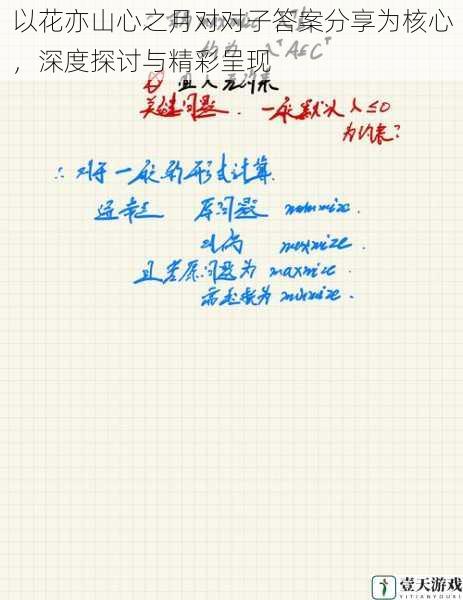 以花亦山心之月对对子答案分享为核心
，深度探讨与精彩呈现
且人无约束
关键问题. 一般默认 λ≤0
为约束?
∴ 对于一般的形式计算.
通常是 原问题 minimize.
对偶 maximize.
且若原问题为 maximize.
需转换为 minimize.
壹天游戏
YITIANYOUXI